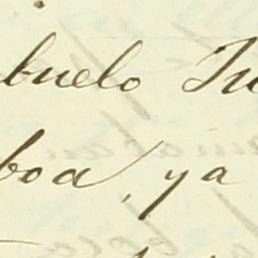 buelo Ju
boa, ya